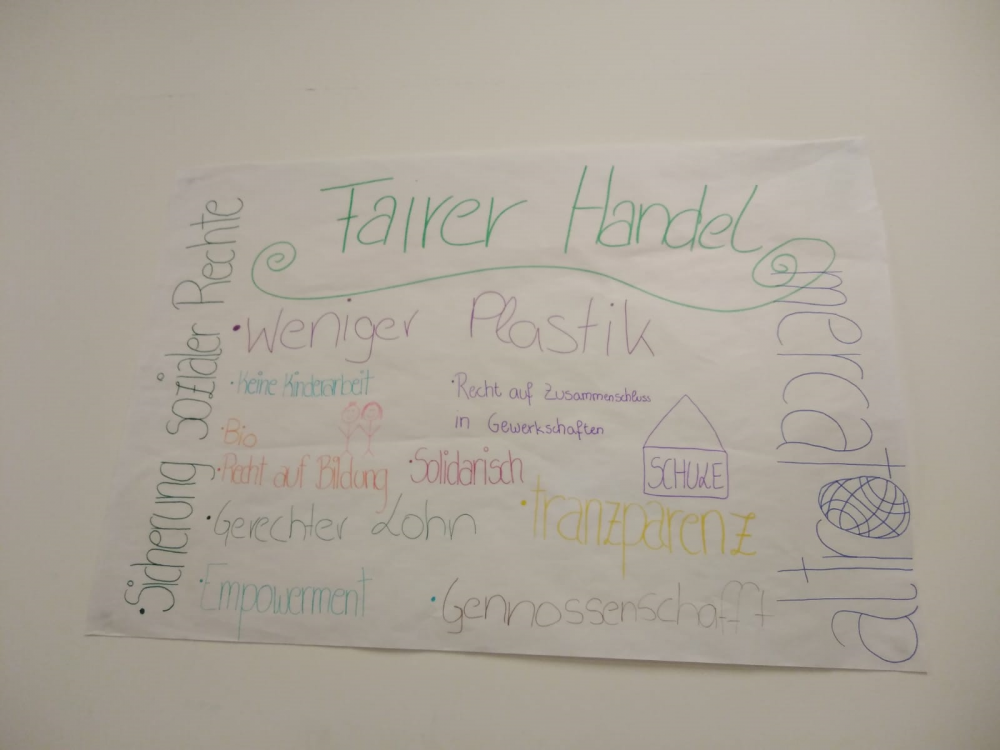 Fairer Handel
• Sicherung sozialer Rechte
• Weniger Plastik
• Keine Kinderarbeit
• Recht auf Zusammenschluss
in Gewerkschaften
• Bio
• Recht auf Bildung
• Solidarisch
SCHULE
• Gerechter Lohn
• Tranzparenz
• Empowerment
• Gennossenschafft
altromercat